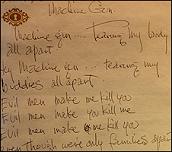 Machine Gun
Machine gun ... Tearing my body
all apart
Machine gun ... tearing my
all apart
Evil men make me kill you
Evil men make you kill me
Evil men make me kill you
Even Though we're only families apart